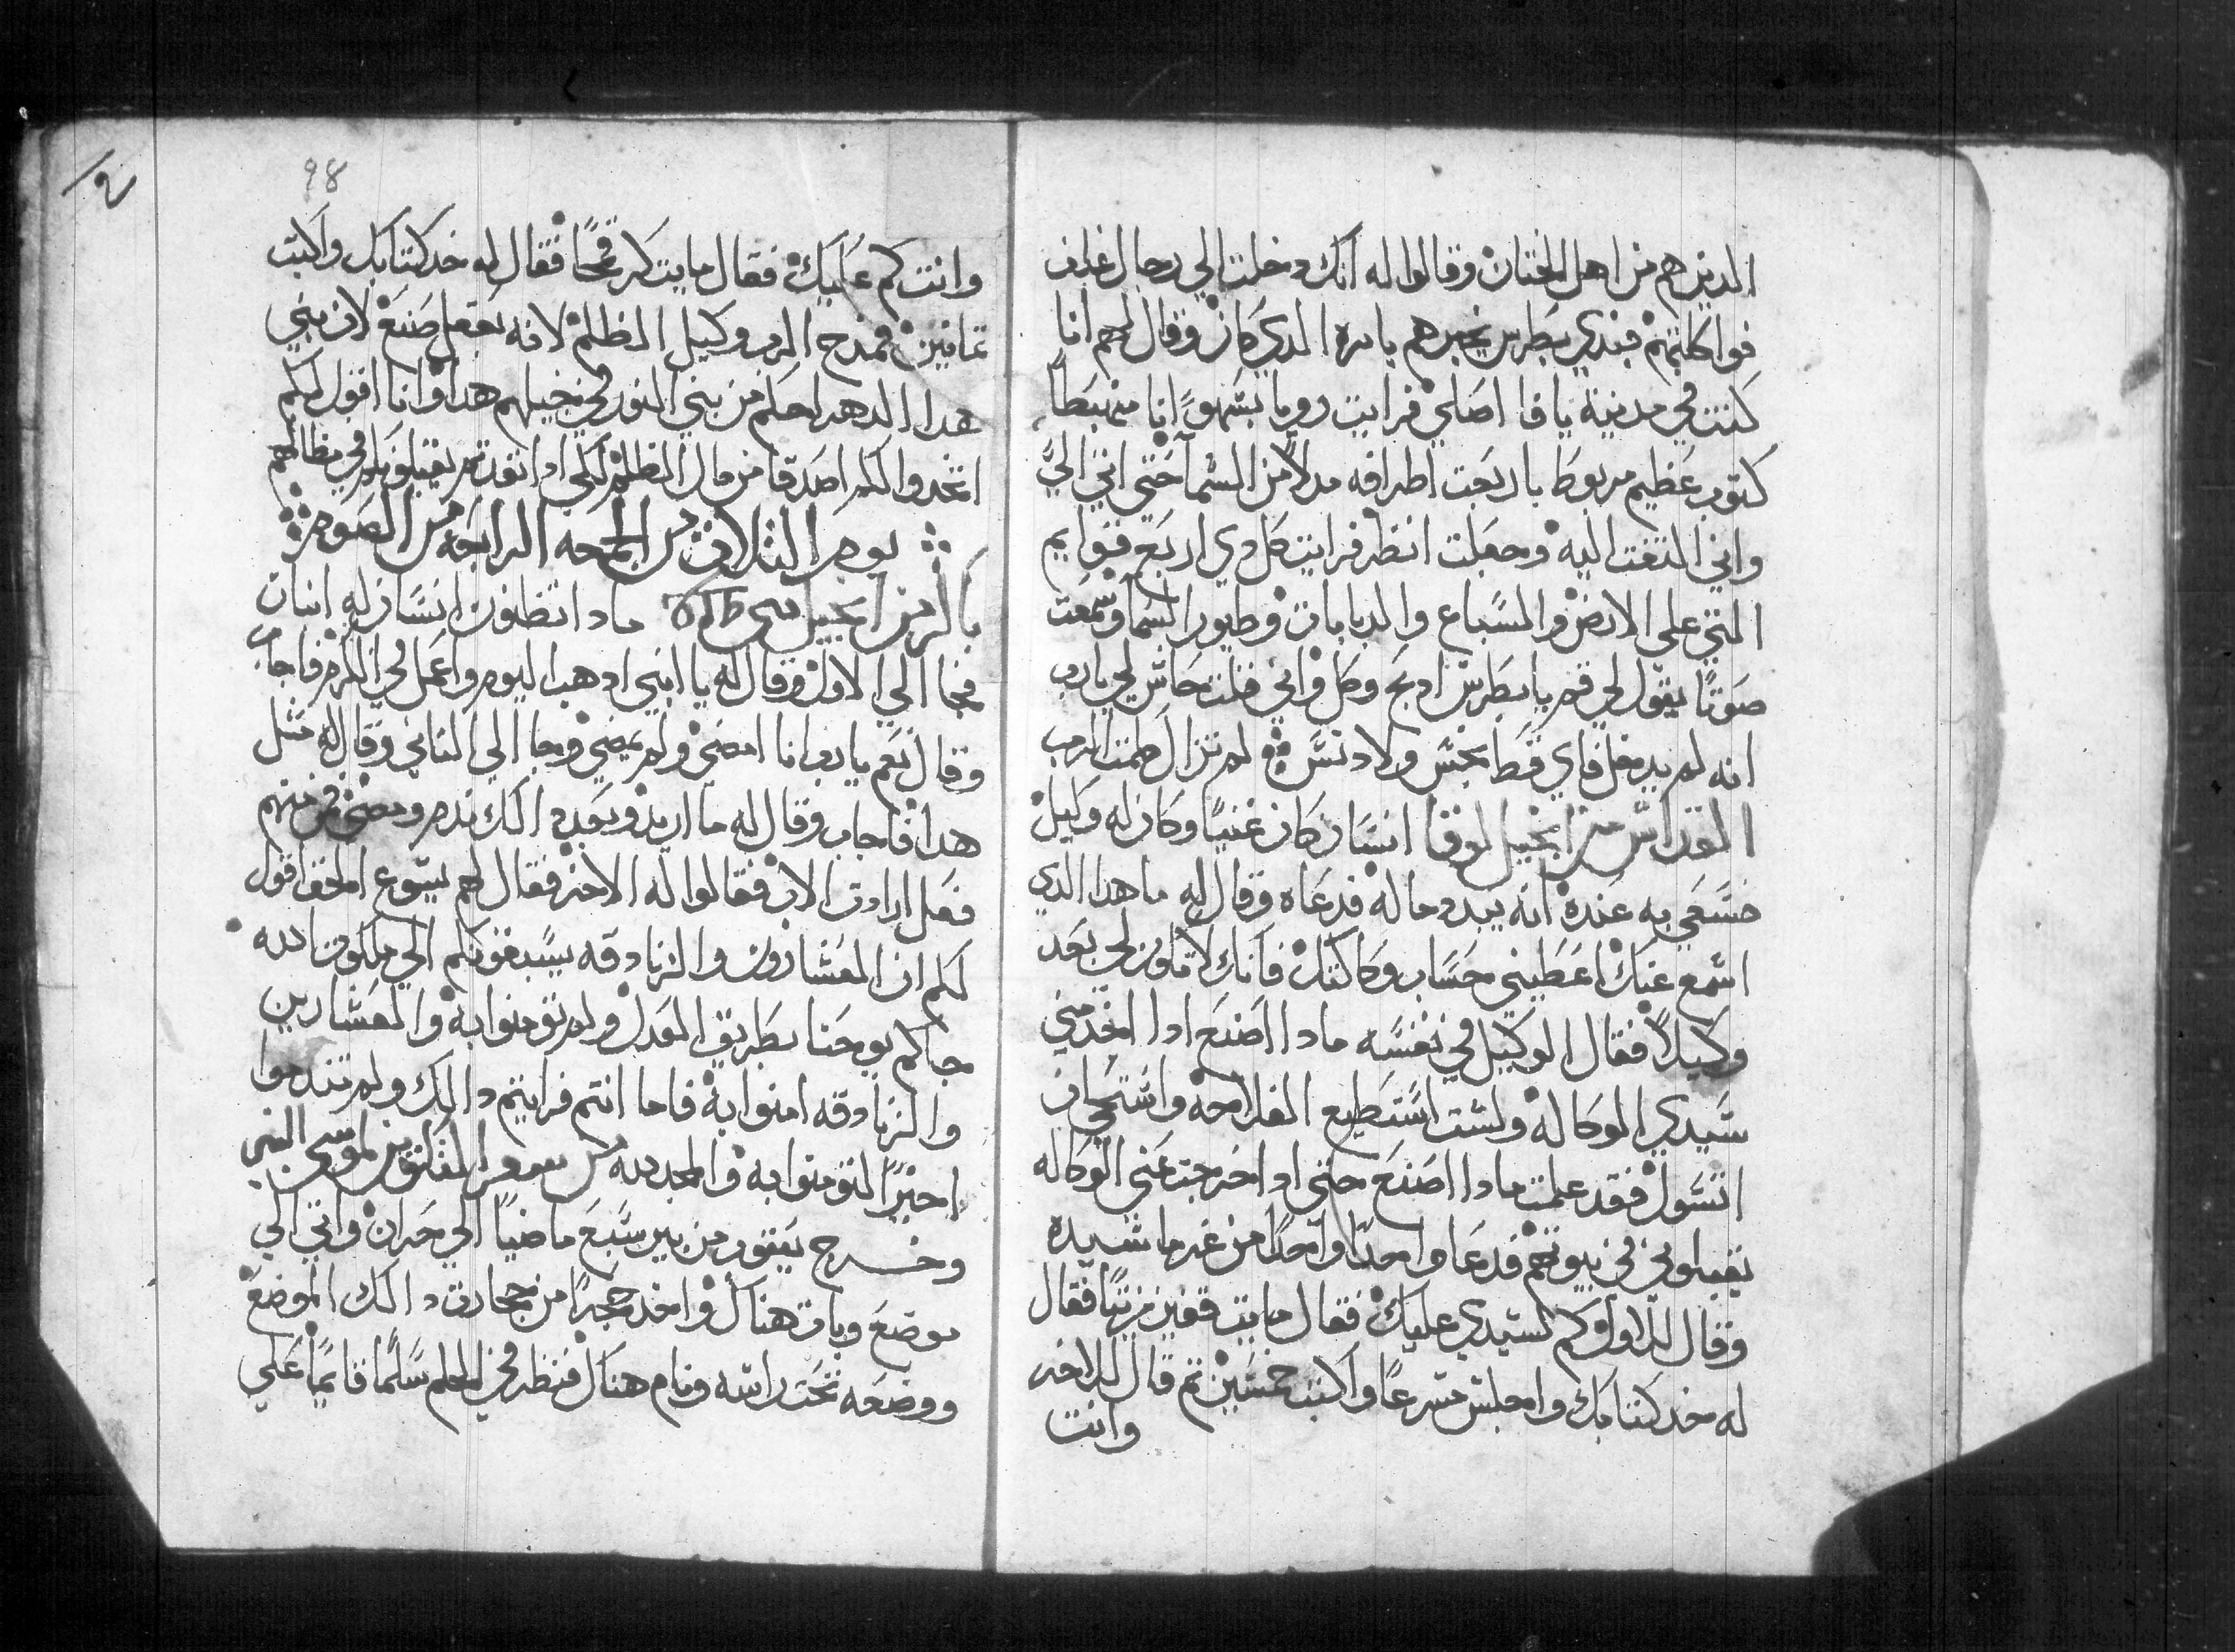 الدين هم من اهل الختان وقالوا له انك دخلت الي رجال غلف
فواكلتهم فبدي بطرس يخبرهم بامره الدي كان وقال لهم انا
كنت في مدينة يافا اصلي فرايت رويا بسهو انا منهبطاً
كتوب عظيم مربوط باربعت اطرافه مدلا من السما حتي اتي الي
واني التفت اليه وجعلت انظر فرايت كل دي اربع قوايم
التي علي الارض والسباع والدبابات وطيور السما وسمعت
صوتًا يقول لي قم يا بطرس ادبح وكل واني قلت حاش لي يارب
انه لم يدخل فاي قط نجس ولا دنس ⁘ لم تزال كلمت الرب
القداس من انجيل لوقا انسان كان غنيًا وكان له وكيل
فسعي به عنده انه يبدد ماله فدعاه وقال له ما هدا الدي
اسمع عنك اعطيني حساب وكالتك فانك لا تكون لي بعد
وكيلاً فقال الوكيل في نفسه مادا اصنع ادا اخد مني
سيدي الوكاله ولست استطيع الفلاحه واستحي ان
اتسول فقد علمت مادا اصنع حتي ادا خرجت عني الوكاله
يقبلوني في بيوتهم فدعا واحدًا واحدًا من غرما سيده
وقال للاول كم لسيدي عليك فقال مايت قفيز زيتًا فقال
له خد كتابك واجلس مسرعًا واكتب خمسين تم قال للاخر
وانت
98
وانت كم عليك فقال مايت كر قمحًا فقال له خد كتابك واكتب
تمانين فمدح الرب وكيل الظلم لانه بعقل صنع لان بني
هدا الدهر احكم من بني النور في جيلهم هدا وانا اقول لكم
اتخدوا لكم اصدقا من مال الظلم لكي ادا نفدتم يقبلونكم في مظالهم
⁘ يوم التلات من الجمعه الرابعه من الصوم ⁘
باكر من انجيل متي مادا تظنون انسان له ابنان
فجا الي الاول وقال له يا ابني ادهب اليوم واعمل في الكرم فاجاب
وقال نعم يا رب انا امضي ولم يمضي وجا الي التاني وقال له متل
هدا فاجاب وقال له ما اريد وبعد دالك ندم ومضي فمن منهم
فعل ارادت الاب فقالوا له الاخر فقال لهم يسوع الحق اقول
لكم ان العشارون والزنادقه يسبقونكم الي ملكوت الله
جاكم يوحنا بطريق العدل ولم تومنوا به والعشارين
والزنادقه امنوا به فاما انتم فرايتم دالك ولم تندموا
اخيرًا لتومنوا به والمجد لله من سفر الخلايق من لموسي النبي
وخــرج يعقوب من بير سبع ماضيًا الي حران واتي الي
موضع وبات هناك واخد حجرًا من حجارت دالك الموضع
ووضعه تحت راسه ونام هناك فنظر في الحلم سلمًا قايمًا علي